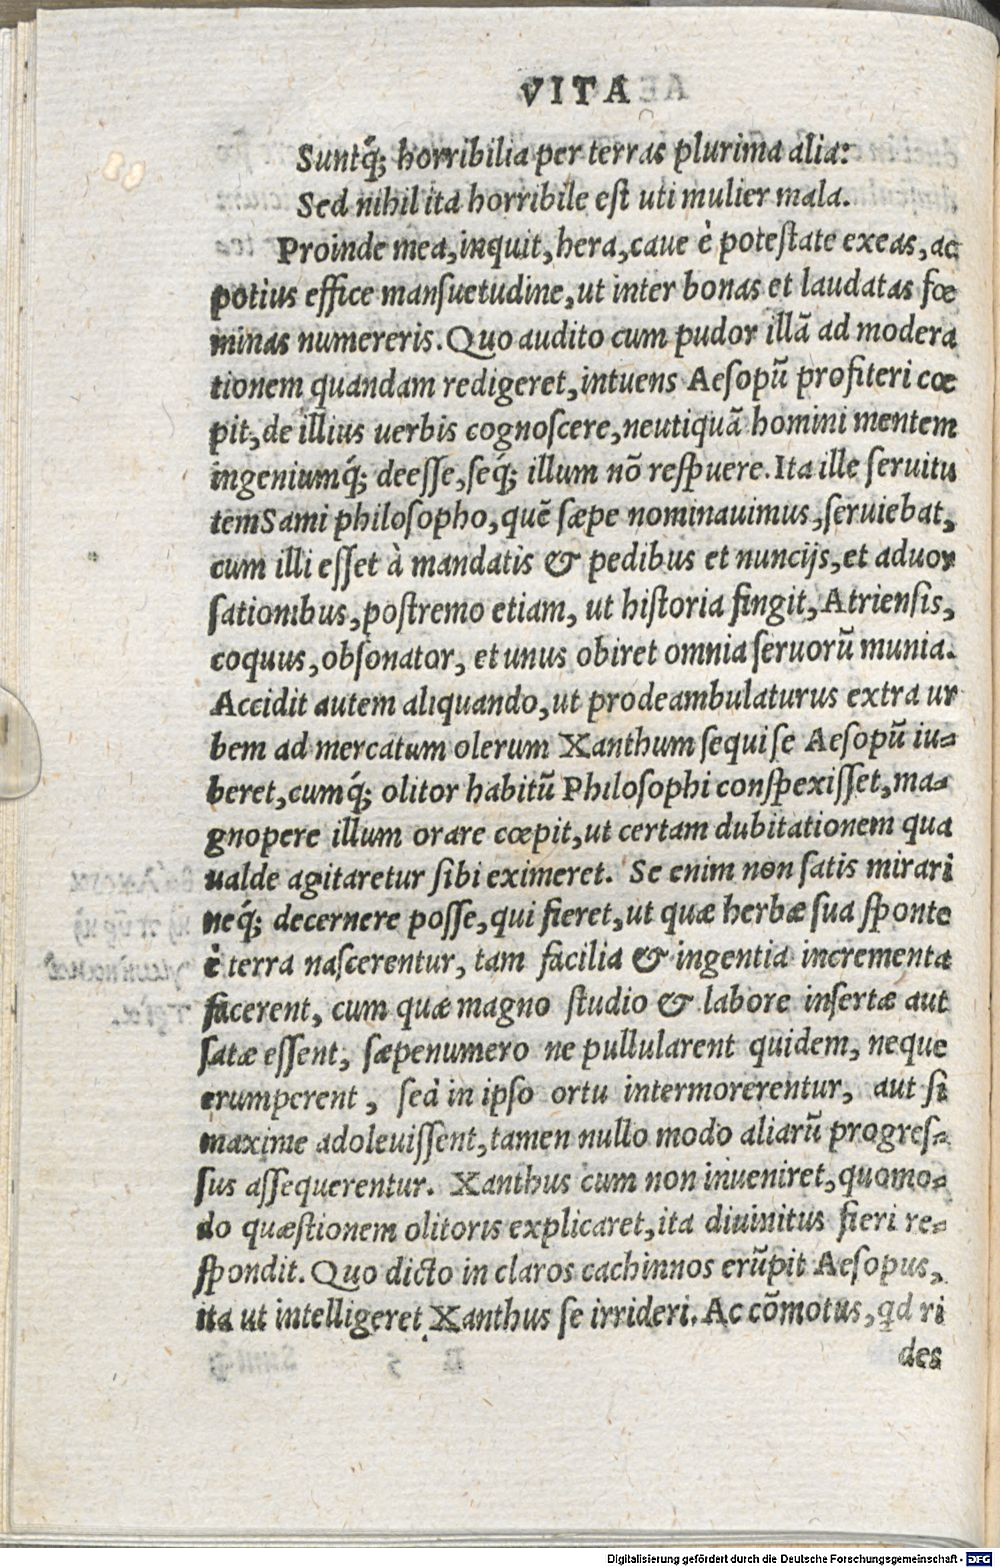 VITA
Suntq́; horribilia per terras plurima alia:
Sed nihil ita horribile est uti mulier mala.
Proinde mea, inquit, hera, caue è potestate exeas, ac
potius effice mansuetudine, ut inter bonas et laudatas fœ
minas numereris. Quo audito cum pudor illā ad modera
tionem quandam redigeret, intuens Aesopū profiteri cœ
pit, de illius uerbis cognoscere, neutiquā homini mentem
ingeniumq́; deesse, seq́; illum nō respuere. Ita ille seruitu
tem Sami philosopho, quē sæpe nominauimus, seruiebat,
cum illi esset à mandatis & pedibus et nuncijs, et aduor
sationibus, postremo etiam, ut historia fingit, Atriensis,
coquus, obsonator, et unus obiret omnia seruorū munia.
Accidit autem aliquando, ut prodeambulaturus extra ur
bem ad mercatum olerum Xanthum sequi se Aesopū iu-
beret, cumq́; olitor habitū Philosophi conspexisset, ma-
gnopere illum orare cœpit, ut certam dubitationem qua
ualde agitaretur sibi eximeret. Se enim non satis mirari
neq́; decernere posse, qui fieret, ut quæ herbæ sua sponte
è terra nascerentur, tam facilia & ingentia incrementa
facerent, cum quæ magno studio & labore insertæ aut
satæ essent, sæpenumero ne pullularent quidem, neque
erumperent, sed in ipso ortu intermorerentur, aut si
maxime adoleuissent, tamen nullo modo aliarū progres-
sus assequerentur. Xanthus cum non inueniret, quomo-
do quæstionem olitoris explicaret, ita diuinitus fieri re-
spondit. Quo dicto in claros cachinnos erūpit Aesopus,
ita ut intelligeret Xanthus se irrideri. Ac cōmotus, qd ri
des
Digitalisierung gefördert durch die Deutsche Forschungsgemeinschaft - DFG